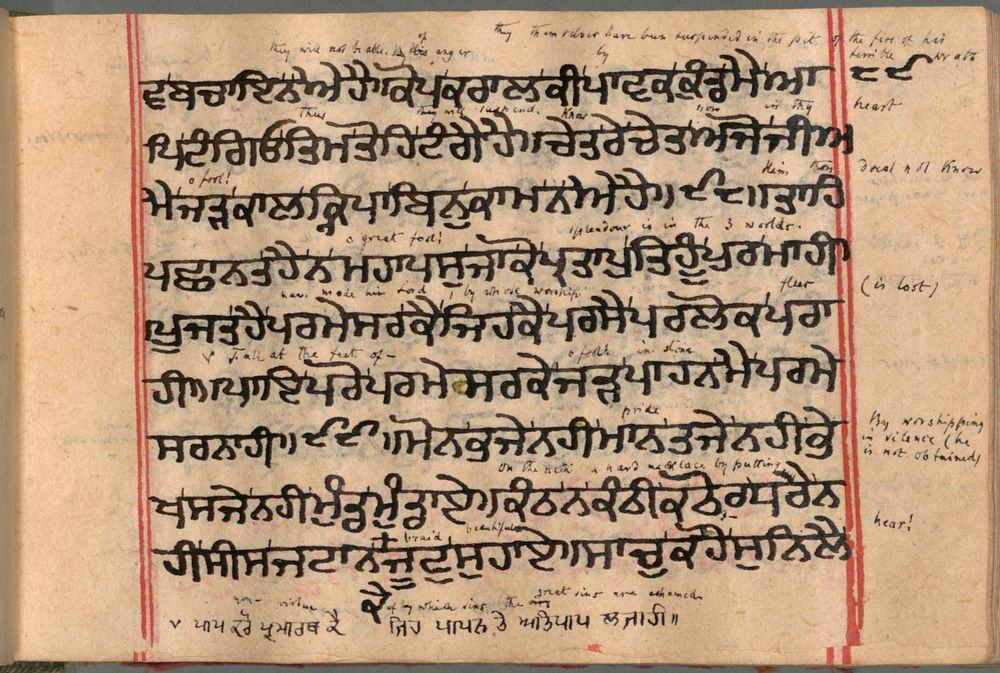 they themselves have been suspended in the pit of the fire of his
they will not be able. By his anger of by terrible wrath
ਵਬਚਾਇਨਐਹੈ॥ਕੋਪਕਰਾਲਕੀਪਾਵਕਕੁੰਡਮੈਆ
thus they will suspend. Know now in thy heart
ਪਿਟੰਗਿਓਤਿਮਤੋਹਿਟੰਗੈਹੈ॥ਚੇਤਰੇਚੇਤਅਜੋਜੀਅ
o fool! Him thou doest not know
ਮੈਜੜਕਾਲਕ੍ਰਿਪਾਬਿਨੁਕਾਮਨਐਹੈ॥੯੮॥ਤਾਹਿ
o great fool! splendour is in the 3 worlds.
ਪਛਾਨਤਹੈਨਮਹਾਪਸੁਜਾਕੋਪ੍ਰਤਾਪੁਤਿਹੂੰਪੁਰਮਾਹੀ॥
hav. made him Lord, by whose worship flees (is lost)
ਪੂਜਤਹੈਪਰਮੇਸਰਕੈਜਿਹਕੈਪਰਸੈਪਰਲੋਕਪਰਾ
v Fall at the feet of – o fool! in stone
ਹੀ॥ਪਾਇਪਰੋਪਰਮੇਸਰਕੇਜੜਪਾਹਨਮੈਪਰਮੇ
pride By worshipping in silence (he is not obtained)
ਸਰਨਾਹੀ॥੯੯॥ਮੋਨਭਜੇਨਹੀਮਾਨਤਜੇਨਹੀਭੇ
On the neck a hard necklace by putting
ਖਸਜੇਨਹੀਮੂੰਡਮੁੰਡਾਏ॥ਕੰਠਨਕੰਠੀਕਠੋਰਧਰੈਨ
braid beautiful hear!
ਹੀਸੀਸਜਟਾਨਜੂਟਸੁਹਾਏ॥ਸਾਚੁਕਹੋਸੁਨਿਲੈ
ਕੈ
virtue of by which sins, the great sins are ashamed
v ਪਾਪ ਕਰੋ ਪ੍ਰਮਾਰਥ ਕੈ ਜਿਹ ਪਾਪਨ ਤੇ ਅਤਿਪਾਪ ਲਜਾਹੀ॥